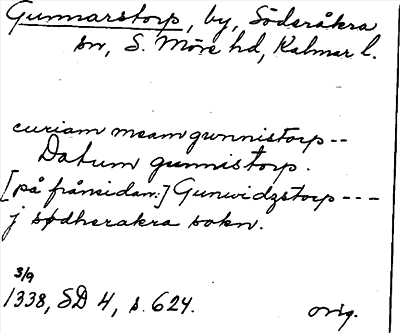 Gunnarstorp, by, Söderåkra
sn, S. Möre hd, Kalmar l.
curiam meam gwnnistorp--
Datum gunnistorp.
[på frånsidan:] Gunwidzstorp---
j sødherakra sokn.
3/9
1338, SD 4, s. 624. orig.